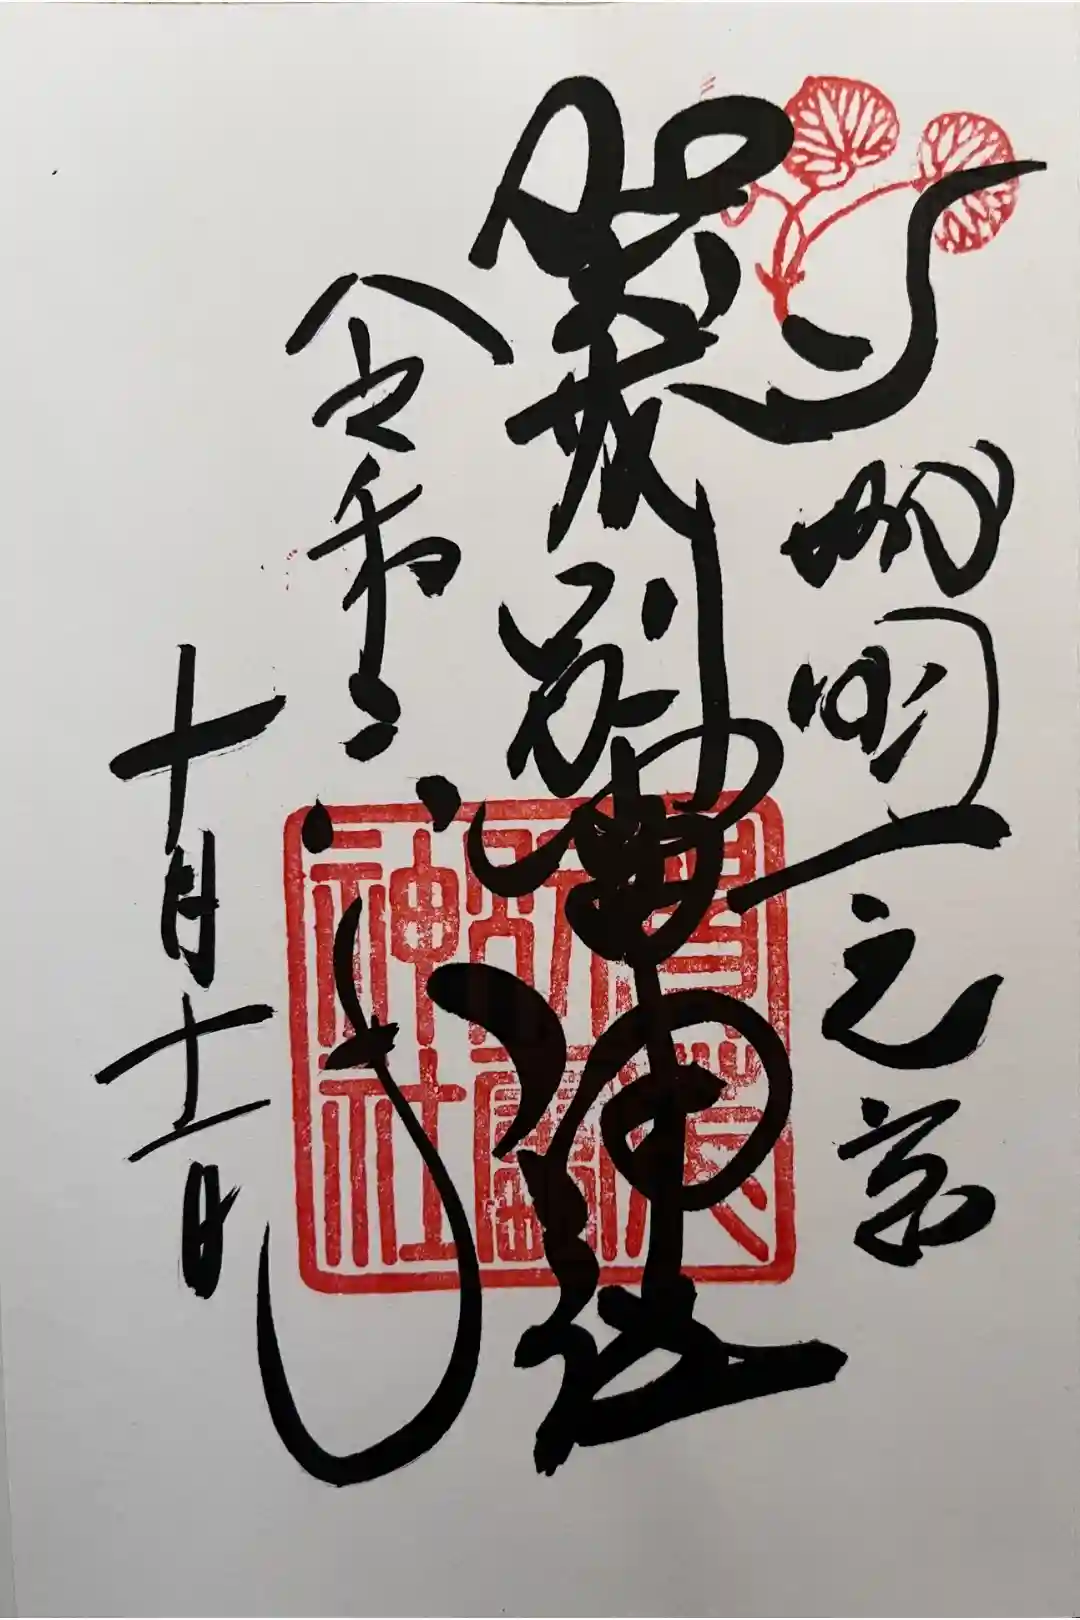 山城国一之宮
賀茂別雷神社
令和六年
十月十一日
賀茂
別雷
神社